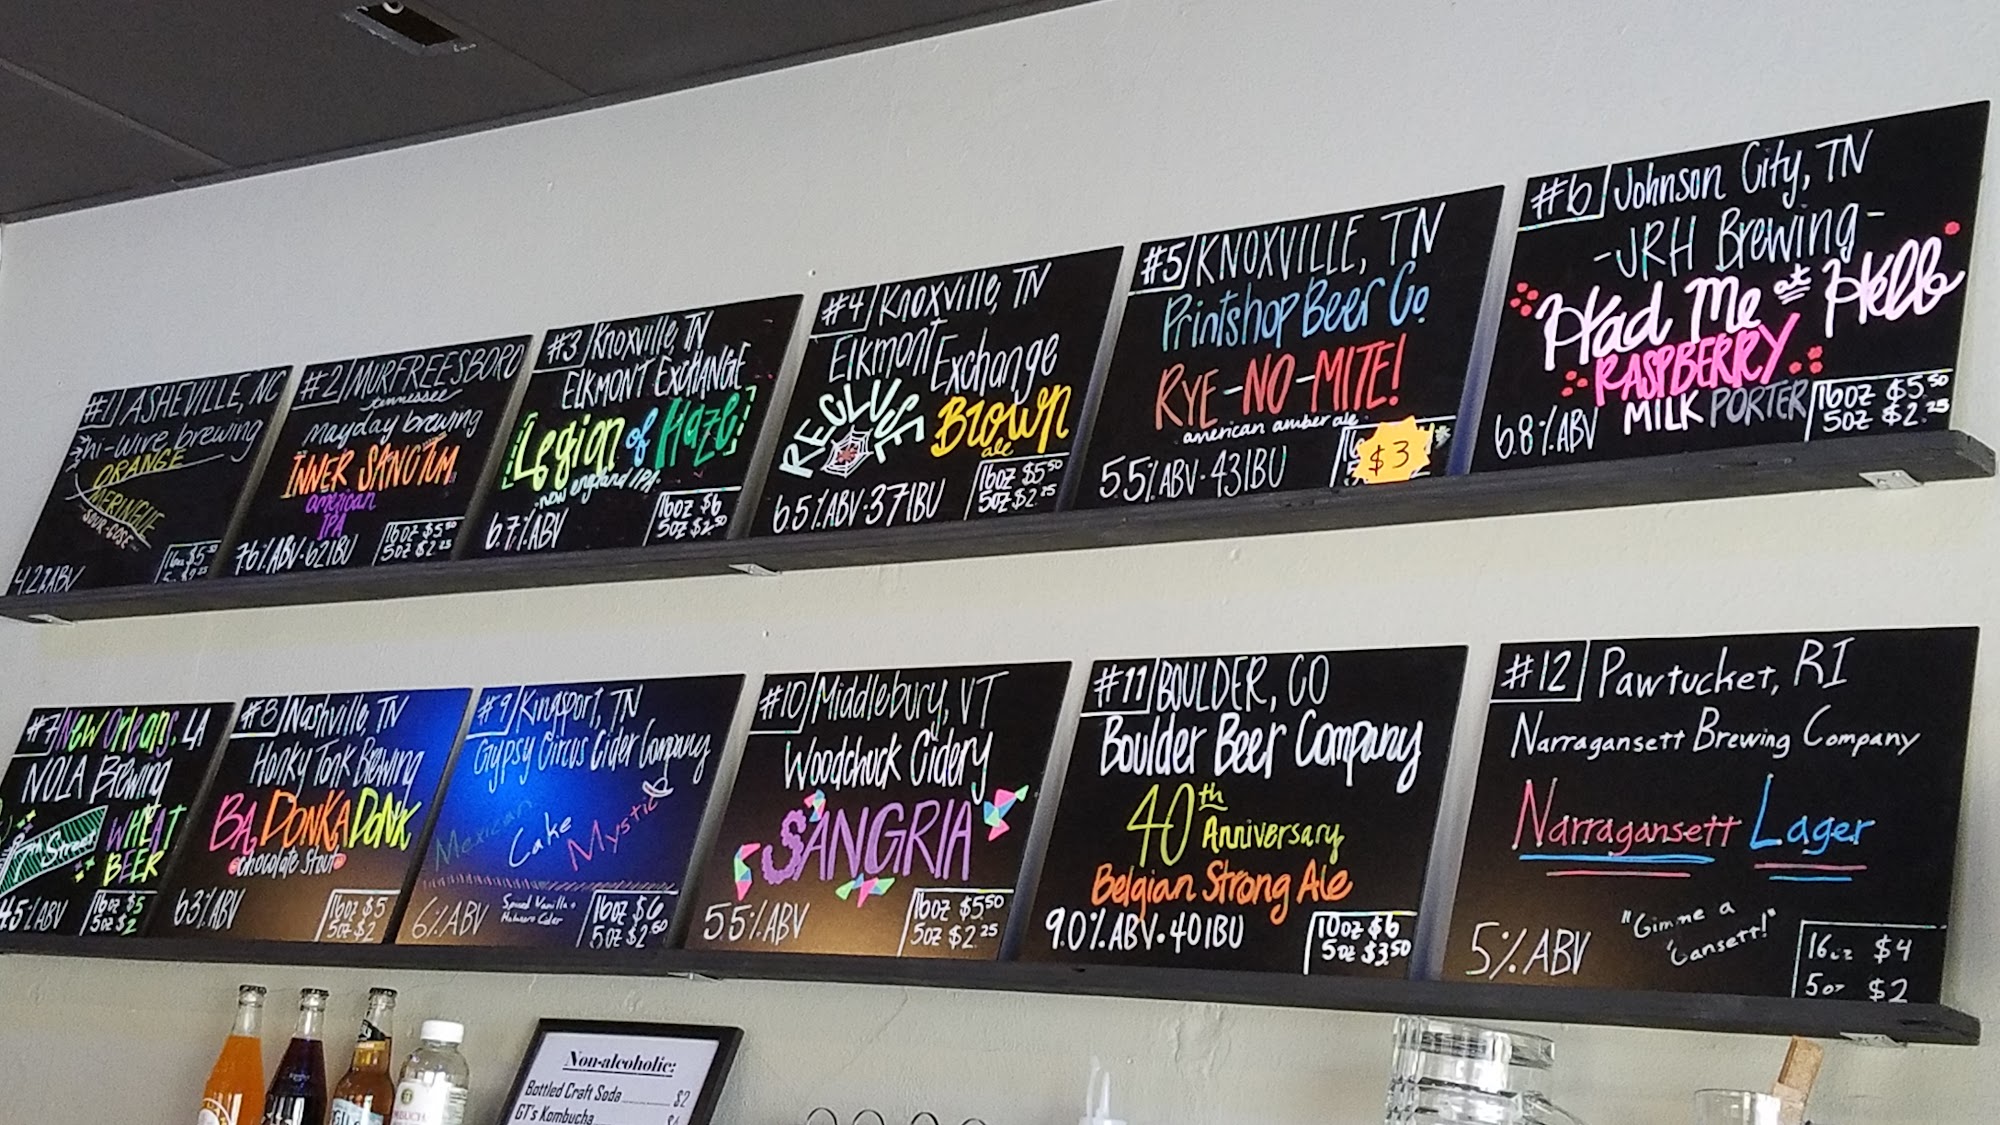 #1 ASHEVILLE, NC
hi-wire brewing
ORANGE
MERINGUE
SOUR-GOSE
4.2% ABV
16oz $5.50
#2 MURFREESBORO
tennessee
mayday brewing
INNER SANCTUM
american
IPA
7.6% ABV · 62 IBU
16oz $5.50
5oz $2.25
#3 Knoxville, TN
ELKMONT EXCHANGE
Legion of Haze
new england IPA
6.7% ABV
16oz $6
5oz $2.50
#4 Knoxville, TN
Elkmont Exchange
RECLUSE
BROWN
ale
6.5% ABV · 37 IBU
16oz $5.50
5oz $2.25
#5 KNOXVILLE, TN
Printshop Beer Co.
RYE-NO-MITE!
american amber ale
5.5% ABV · 43 IBU
$3
#6 Johnson City, TN
-JRH Brewing-
Had Me at Hello
RASPBERRY
MILK PORTER
6.8% ABV
16oz $5.50
5oz $2.25
#7 New Orleans, LA
NOLA Brewing
Street
WHEAT
BEER
4.5% ABV
16oz $5
5oz $2
#8 Nashville, TN
Honky Tonk Brewing
BA DONKA DONK
chocolate stout
6.3% ABV
16oz $5
5oz $2
#9 Kingsport, TN
Gypsy Circus Cider Company
Mexican
Cake
Mystic
6% ABV
Spiced Vanilla +
Habanero Cider
16oz $6
5oz $2.50
#10 Middlebury, VT
Woodchuck Cidery
SANGRIA
5.5% ABV
16oz $5.50
5oz $2.25
#11 BOULDER, CO
Boulder Beer Company
40th
Anniversary
Belgian Strong Ale
9.0% ABV · 40 IBU
10oz $6
5oz $3.50
#12 Pawtucket, RI
Narragansett Brewing Company
Narragansett Lager
"Gimme a
'Gansett!"
5% ABV
16oz $4
5oz $2
Non-alcoholic:
Bottled Craft Soda $2
GT's Kombucha